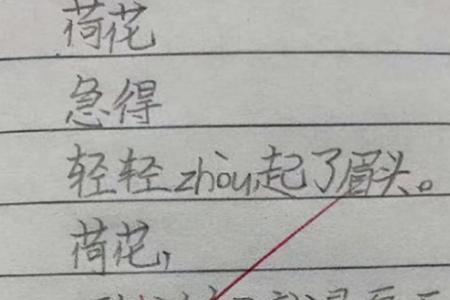 荷花
急得
轻轻zhòu起了眉头。
荷花，